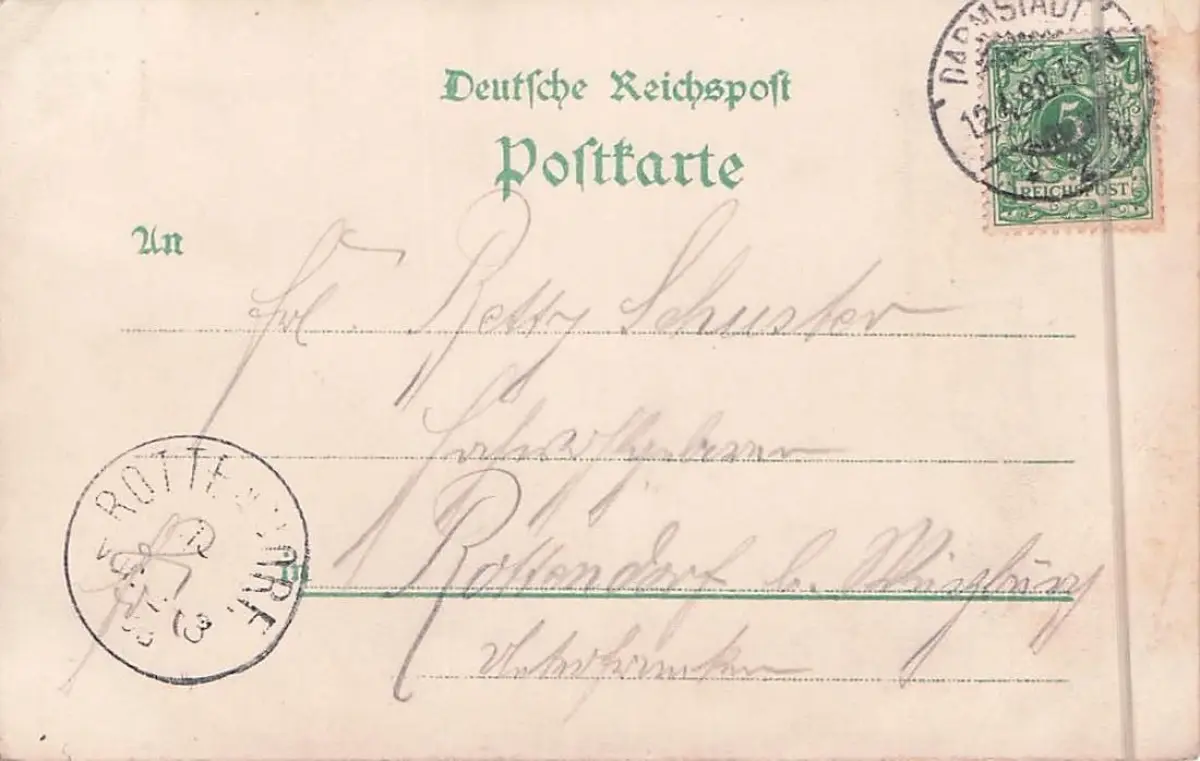 DARMSTADT
12.4.98.4-5N
5
REICHSPOST
Deutsche Reichspost
Postkarte
An
Frl. Betty Schuster
in Rottendorf b. Würzburg
Unterfranken
ROTTENDORF